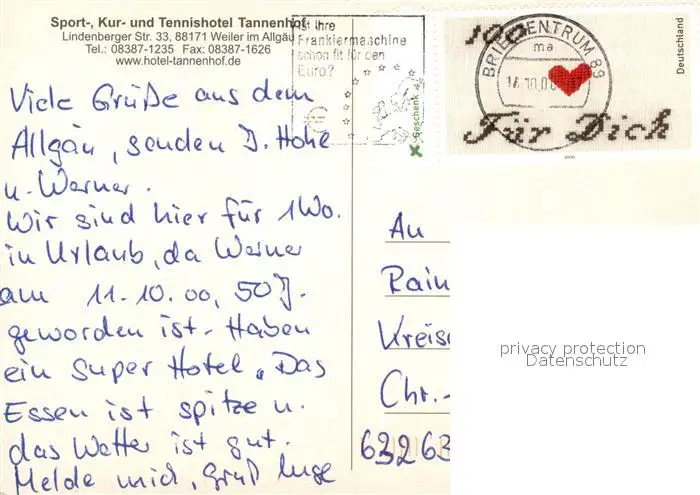 Sport-, Kur- und Tennishotel Tannenhof
Lindenberger Str. 33, 88171 Weiler im Allgäu
Tel.: 08387-1235 Fax: 08387-1626
www.hotel-tannenhof.de
Ist Ihre
Frankiermaschine
schon fit für den
Euro?
Geschenk
100
BRIEFZENTRUM 89
ma
Für Dich
Deutschland
2000
Viele Grüße aus dem
Allgäu, senden D. Hohe
u. Werner.
Wir sind hier für 1Wo.
in Urlaub, da Werner
am 11.10.00, 50J.
geworden ist. Haben
ein super Hotel. Das
Essen ist spitze u.
das Wetter ist gut.
Melde mich, Gruß Inge
An
Rain
Kreis
Chr.-
63263
privacy protection
Datenschutz